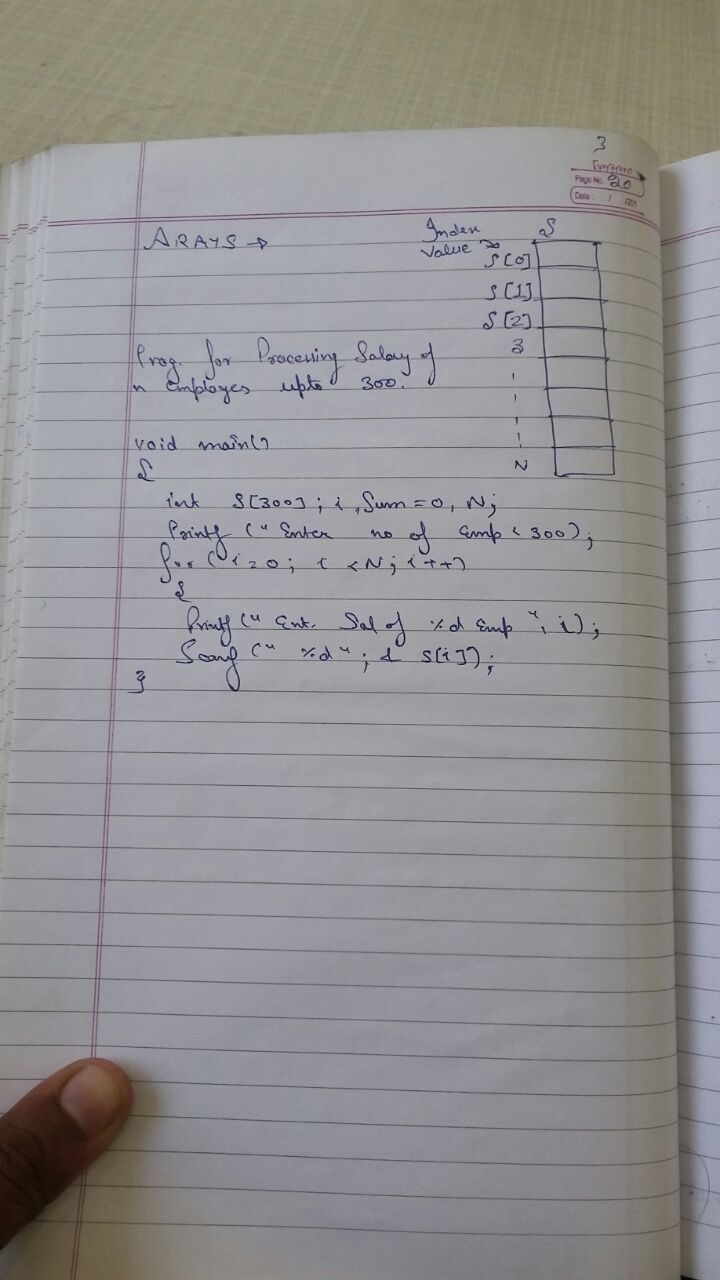 3
Page No. 20
Date: / /201
ARAYS →
Index
Value
S
S[0]
S[1]
S[2]
3
N
Prog. for Processing Salary of
n employes upto 300.
void main()
{
int S[300]; i, Sum=0, N;
Printf (" Enter no of Emp < 300);
for (i=0; i <N; i++)
{
Printf (" Ent. Sal of %d Emp ", i);
Scanf (" %d"; & S[i]);
}